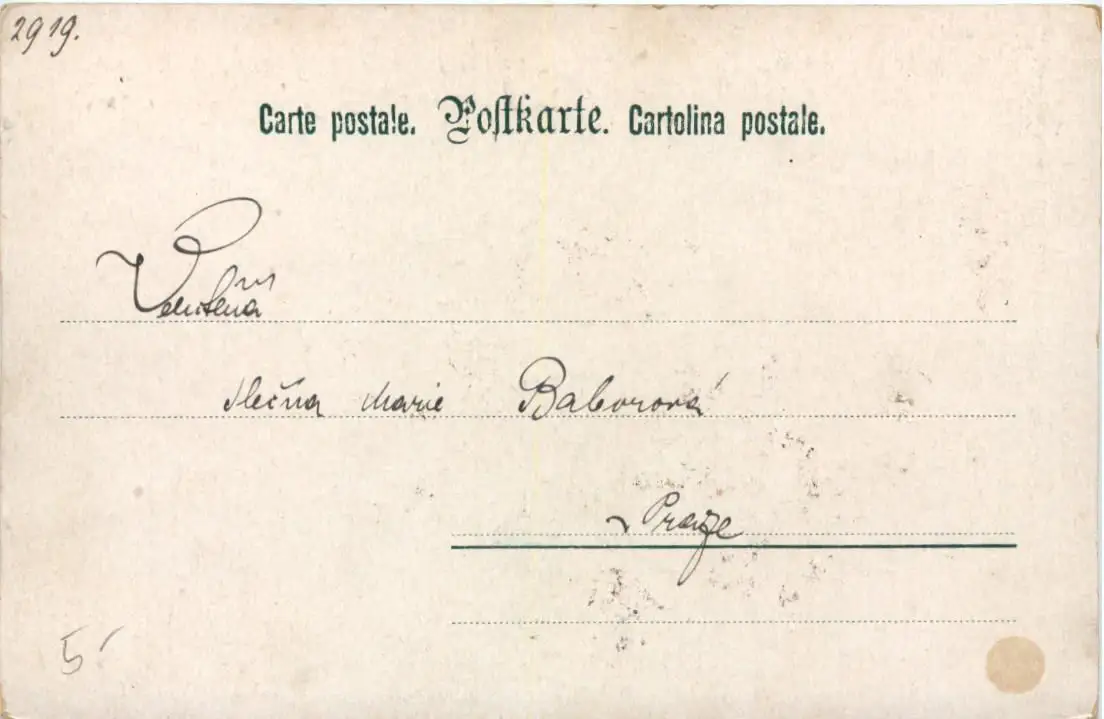 2919.
Carte postale. Postkarte. Cartolina postale.
slečna Marie Baborová
v Praze
5